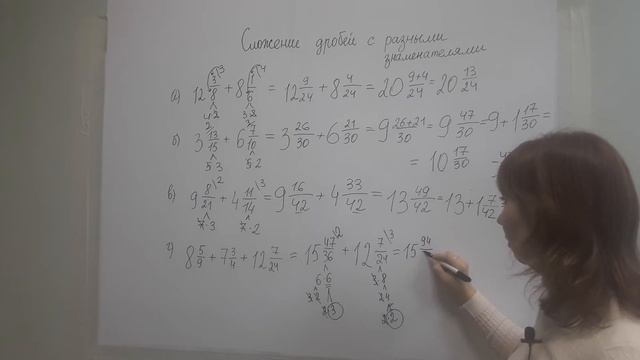 Сложение дробей с разными
знаменателями
а) 12 3/8 \3 + 8 1/6 \4 = 12 9/24 + 8 4/24 = 20 9+4/24 = 20 13/24
4·2 3·2
2·2
б) 3 13/15 \2 + 6 7/10 \3 = 3 26/30 + 6 21/30 = 9 26+21/30 = 9 47/30 = 9 + 1 17/30 =
5·3 5·2
= 10 17/30
в) 9 8/21 \2 + 4 11/14 \3 = 9 16/42 + 4 33/42 = 13 49/42 = 13 + 1 7/42
7·3 7·2
г) 8 5/9 + 7 3/4 + 12 7/24 = 15 47/36 \2 + 12 7/24 \3 = 15 94
6·6 3·8
3·2 2·4
2·3 2·2